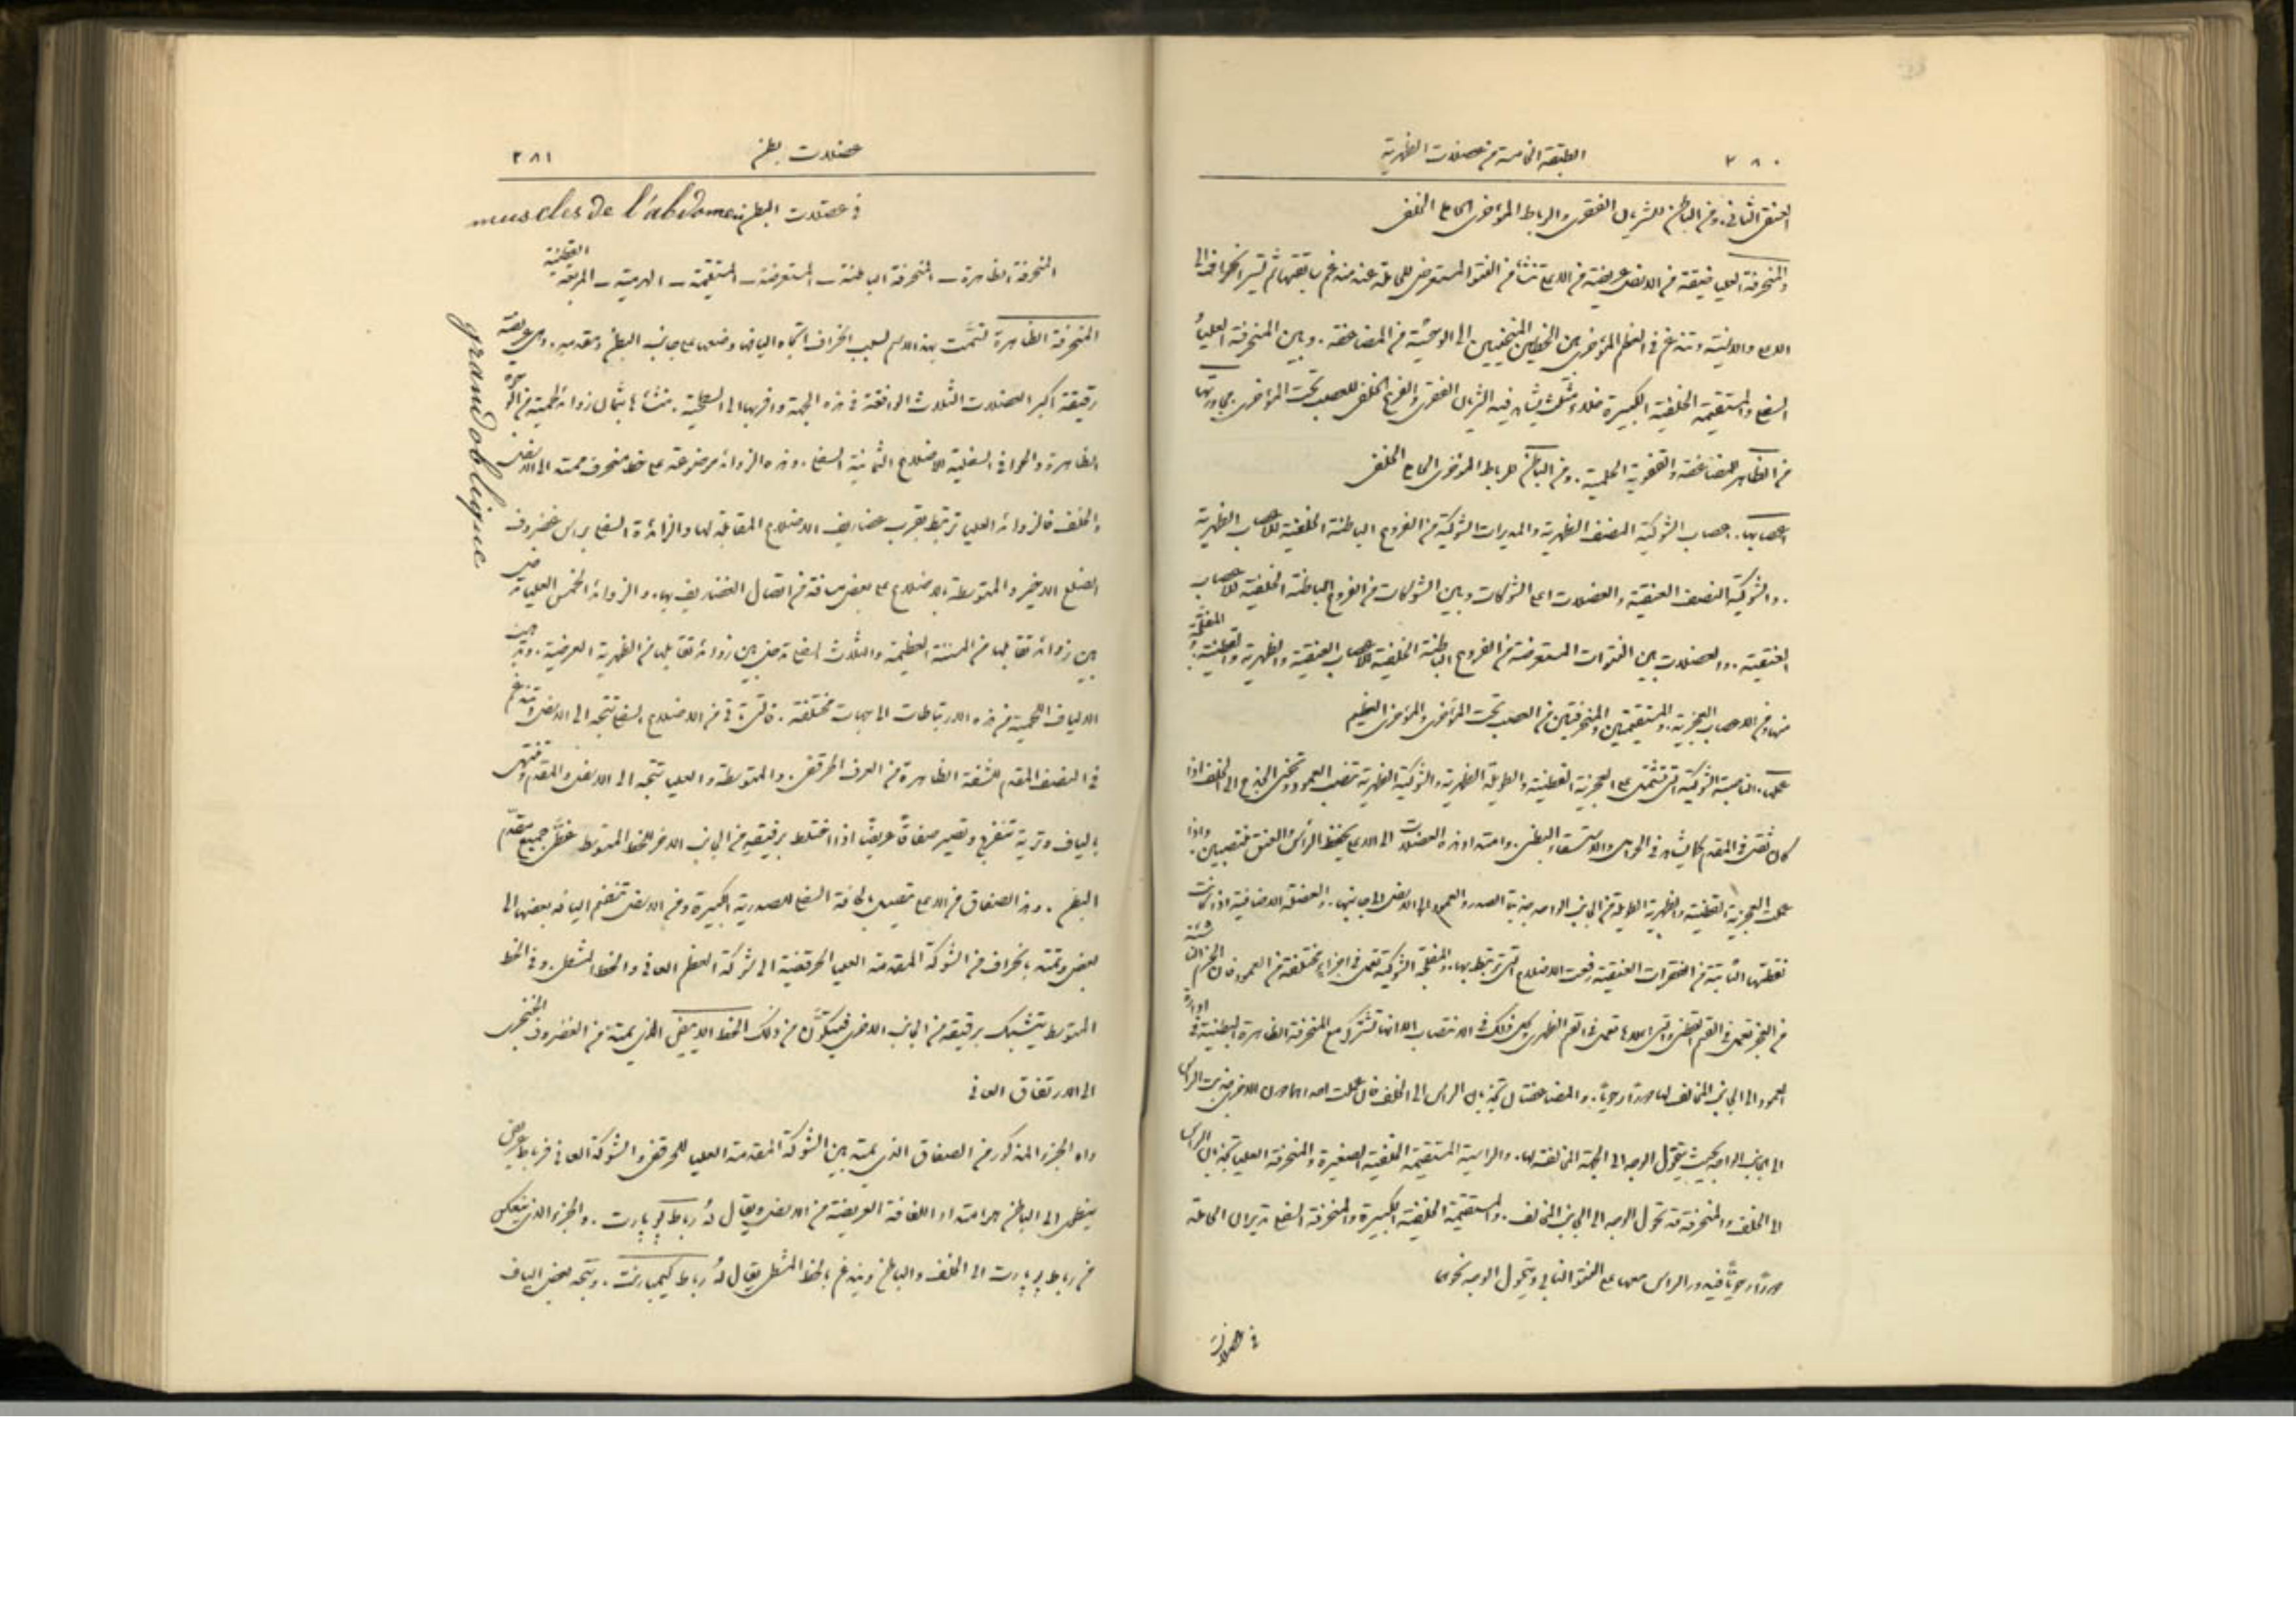 ٢٨٠
الطبقة الخامسة من عضلات الظهرية
العنق الثاني. ومن الباطن للشريان الفقري والرباط المؤخري الحامل الخلفي
والمنحرفة العليا ضيقة من الاسفل عريضة من الاعلى تنشأ من النتوء المستعرض للحاملة عند مندغم سابقتها ثم تسير انحرافا الى
الاعلى والانسية وتندغم في العظم المؤخري بين الخطين المنحنيين الى الوحشية من المضاعفة. وبين المنحرفة العليا
السفلى والمستقيمة الخلفية الكبيرة خلاء مثلث يشاهد فيه الشريان الفقري والفرع الخلفي للعصب تحت المؤخري. مجاورتها
من الظاهر للمضاعفة والقحفوية الحلمية. ومن الباطن للرباط المؤخري الحامل الخلفي
اعصابها. اعصاب الشوكية النصف الظهرية والمديرات الشوكية من الفروع الباطنة الخلفية للاعصاب الظهرية
. والشوكية النصف العنقية والعضلات اعلى الشوكات وبين الشوكات من الفروع الباطنة الخلفية للاعصاب
العنقية. والعضلات بين النتوات المستعرضة من الفروع الباطنة الخلفية للاعصاب العنقية والظهرية والقطنية. والمفلجة
منها ومن الاعصاب العجزية. والمستقيمتين والمنحرفتين من العصب تحت المؤخري والمؤخري العظيم
عملها. الناصبة الشوكية التي تشتمل على العجزية القطنية والطويلة الظهرية والشوكية الظهرية تنصب العمود وتحني الجذع الى الخلف اذا
كان ثقل في المقدم كما يشاهد في الحوامل والاستسقاء البطني. وامتداد هذه العضلات الى الاعلى يحفظ الرأس والعنق منتصبين. واذا
عملت العجزية القطنية والظهرية الطويلة من الجانب الواحد جذبتا الصدر والعمود الى الاسفل والى جانبها. والعضلة الاضافية اذا كانت
نقطتها الثابتة من الفقرات العنقية رفعت الاضلاع التي ترتبط بها. والمفلجة الشوكية تعمل في اجزاء مختلفة من العمود فان الحزم الناشئة
من العجز تعمل في القسم القطني والتي اعلاها تعمل في القسم الظهري وكل ذلك في الانتصاب الا انها تشترك مع المنحرفة الظاهرة البطنية في ادارة
العمود الى الجانب المخالف لها دورا رحويا. والمضاعفتان تجذبان الراس الى الخلف فان عملت احداهما دون الاخرى جذبت الراس
الى الجانب الواحد بحيث يتحول الوجه الى الجهة المخالفة لها. والراسية المستقيمة الخلفية الصغيرة والمنحرفة العليا تجذبان الراس
الى الخلف والمنحرفة قد تحول الوجه الى الجانب المخالف. والمستقيمة الخلفية الكبيرة والمنحرفة السفلى تديران الحاملة
دورا رحويا فيدور الراس معها على النتوء النابي ويتحول الوجه نحوها
في عضلات
عضلات بطن
٢٨١
في عضلات البطن muscles de l'abdomen
المنحرفة الظاهرة - المنحرفة الباطنة - المستعرضة - المستقيمة - الهرمية - المربعة القطنية
المنحرفة الظاهرة تسمت بهذا الاسم لسبب انحراف اتجاه اليافها وضعها على جانب البطن ومقدمه. وهي عريضة
grand oblique
رقيقة اكبر العضلات الثلاث الواقعة في هذه الجهة واقربها الى السطحية. منشأها بثمان زوائد لحمية من الوجوه
الظاهرة والحوافي السفلية للاضلاع الثمانية السفلى. وهذه الزوائد موضوعة على خط منحرف ممتد الى الاسفل
والخلف فالزوائد العليا ترتبط بقرب غضاريف الاضلاع المقابلة لها والزائدة السفلى براس غضروف
الضلع الاخير والمتوسطة بالاضلاع على بعض مسافة من اتصال الغضاريف بها. والزوائد الخمس العليا تدخل
بين زوائد تقابلها من المسننة العظيمة والثلاث السفلى تدخل بين زوائد تقابلها من الظهرية العريضة. وتذهب
الالياف اللحمية من هذه الارتباطات الى جهات مختلفة. فالتي تاتي من الاضلاع السفلى تتجه الى الاسفل وتندغم
في النصف المقدم للشفة الظاهرة من العرف الحرقفي. والمتوسطة والعليا تتجه الى الاسفل والمقدم وتنتهي
بالياف وترية تنفرج وتصير صفاقا عريضا اذا اختلط برفيقه من الجانب الاخر للخط المتوسط غطى جميع مقدم
البطن. وهذا الصفاق من الاعلى متصل بالحافة السفلى للصدرية الكبيرة ومن الاسفل تنضم اليافه بعضها الى
بعض وتمتد بانحراف من الشوكة المقدمة العليا الحرقفية الى شوكة العظم العاني والخط المشطي. وفي الخط
المتوسط يتشبك برفيقه من الجانب الاخر فيتكون من ذلك الخط الابيض الذي يمتد من الغضروف الخنجري
الى الارتفاق العاني
واما الجزء المذكور من الصفاق الذي يمتد بين الشوكة المقدمة العليا للحرقفي والشوكة العاني فرباط عريض
ينطوي الى الباطن وامتداد اللفافة العريضة من اسفل ويقال له رباط پوپارت. والجزء الذي ينعكس
من رباط پوپارت الى الخلف والباطن ويندغم بالخط المشطي يقال له رباط كيمبارنت. ويتجه بعض الياف